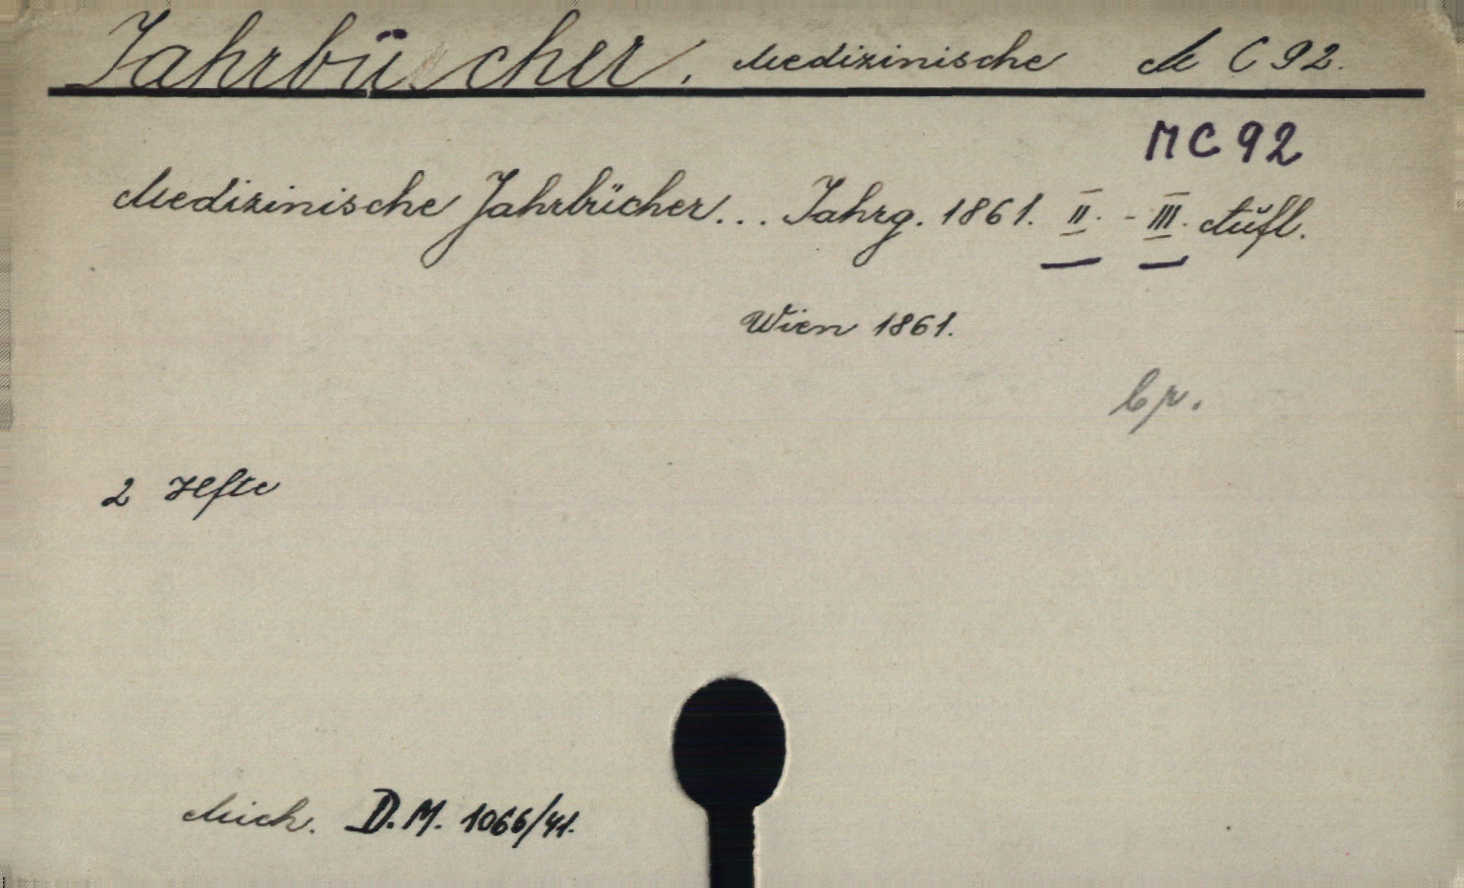 Jahrbücher. Medizinische M C 92.
MC 92
Medizinische Jahrbücher... Jahrg. 1861. II. - III. Aufl.
Wien 1861.
2 Hefte
Mich. D.M. 1066/41.